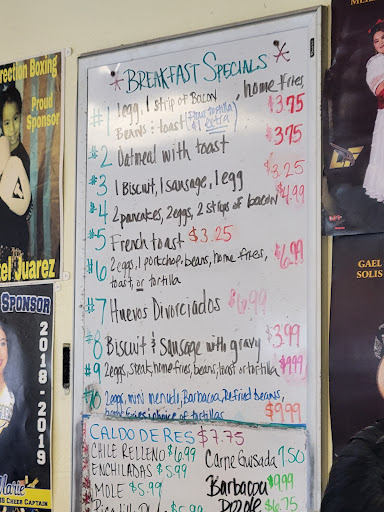 BREAKFAST SPECIALS
#1 1 egg, 1 strip of Bacon, home fries,
Beans & toast (flour tortilla extra) $3.75
#2 Oatmeal with toast $3.75
#3 1 Biscuit, 1 sausage, 1 egg $3.25
#4 2 pancakes, 2 eggs, 2 strips of bacon $4.99
#5 French toast $3.25
#6 2 eggs, 1 porkchop, beans, home fries, $6.99
toast, or tortilla
#7 Huevos Divorciados $6.99
#8 Biscuit & Sausage with gravy $3.99
#9 2 eggs, steak, home fries, beans, toast or tortilla $9.99
2 eggs, mini menudo, Barbacoa, Refried beans,
home fries & choice of tortillas $9.99
CALDO DE RES $7.75
CHILE RELLENO $6.99
ENCHILADAS $5.99
MOLE $5.99
Carne Guisada 7.50
Barbacoa $9.99
$6.75
rection Boxing
Proud
Sponsor
tel Juarez
SPONSOR
2018-2019
Marie
CHEER CAPTAIN
GAEL
SOLIS